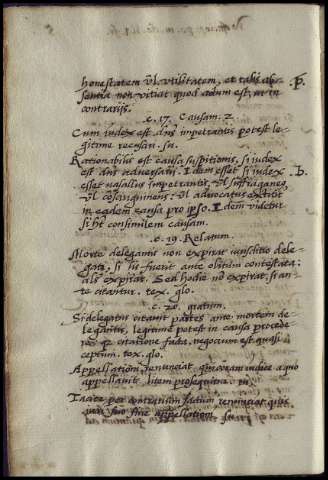 honestatem vl vtilitatem, et talis ab-
sentia non vitiat quod actum est, ut in
contrariis.
c. 17. Causam. 2.
Cum iudex est dns impetrantis potest le-
gitime recusari. su.
Rationabilis est causa suspitionis, si iudex
est dns aduersarii. Idem esset si iudex
esset vasallus impetrantis, vl suffraganeus,
vl consanguineus, vl aduocatus extitit
in eadem causa pro ipso. Idem videtur
si hēt consimilem causam.
c. 19. Relatum.
Morte delegantis non expirat iurisdictio dele-
gata, si lis fuerit ante obitum contestata:
als expirat. Sed hodie nō expirat, si an-
te citantur. tex. glo.
c. 20. gratum.
Si delegatus citauit partes ante mortem de-
legantis, legitimè potest in causa procede-
re q citatione facta, negocium est quasi
ceptum. tex. glo.
Appellationi renunciat qui coram iudice a quo
appellauit litem prosequitur.
Tacitè per contrarium factum renunciat quis
iuri suo siue appellationi. su.